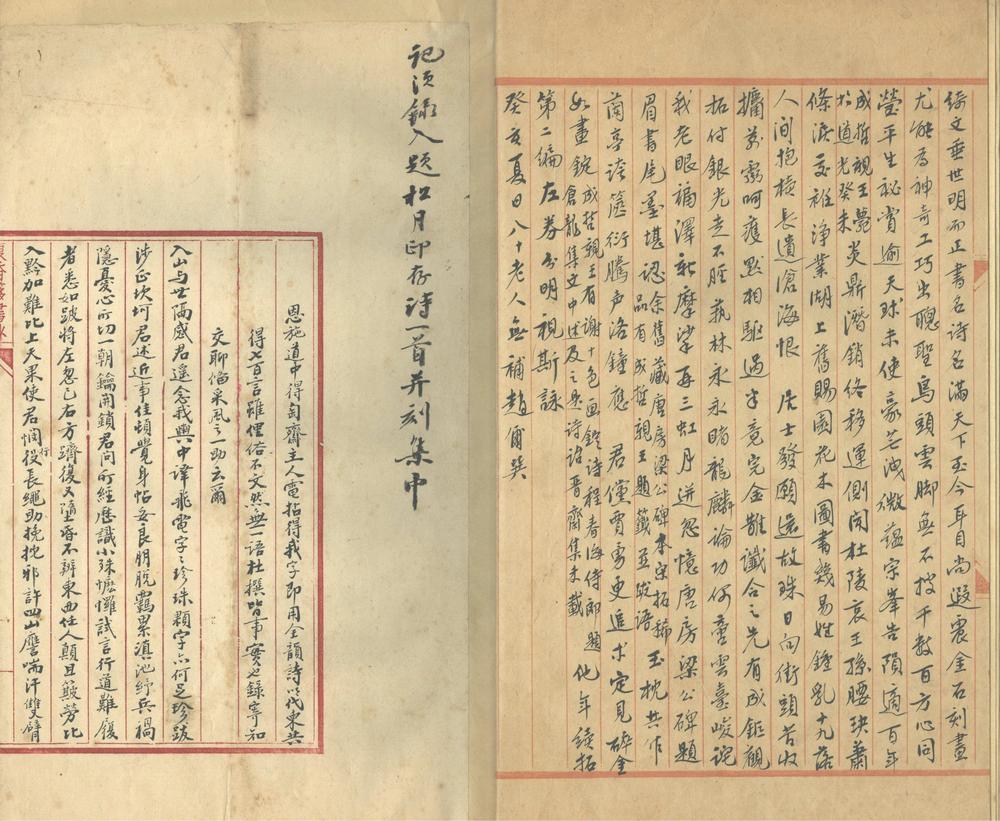 綺文垂世明而正書名詩名滿天下至今耳目尚遐震金石刻畫
尤能為神奇工巧出聰聖烏頭雲脚無不披千數百方心同
瑩平生祕賞逾天球未使豪芒洩微蘊宗峯告隕適百年
成哲親王薨
於道光癸未
炎鼎潛銷終移運側閃杜陵哀王孫腰玦肅
條淚交袵淨業湖上舊賜園花木圖書幾易姓鍾乳十九落
人間抱椟長遺滄海恨 居士發願還故珠日向街頭苦收
攟萬剺呵癭黙相駈過半竟完金雝讖合之先有成鉅觀
拓付銀光走不脛藝林永永睹龍麟論功何啻雲臺峻詫
我老眼福澤新摩挲再三虹月迸忽憶唐房梁公碑題
眉書尾墨堪認
余舊藏唐房梁公碑本宋拓稀
品有成哲親王題籤並跋語
玉枕共作
蘭亭誇籩衍騰声洛鐘應 君儻賈勇更追求定見碎金
如畫錠
成哲親王有謝十色画錠詩程春海侍郎題
倉龍集文中述及之是詩詒晋齋集未載
他年續拓
第二編左券分明視斯詠
癸亥夏日八十老人無補趙爾巽
記須錄入題松月印存詩一首并刻集中
恩施道中得匋齋主人電拈得我字即用全韻詩以代柬共
得七百言雖俚俗不文然無一語杜撰皆事實也録寄知
交聊備采風之一助云爾
入山与世隔感君遙念我興中譯飛電字之珍珠顆字亦何足珍跋
涉正坎坷君述近事佳頓覺身帖妥良朋脫羈累滇池紓兵禍
隱憂心所切一朝鑰開鎖君问所經歷識小殊懡㦬試言行道難履
者悉如跛將左忽已右方躋復又墮昏不辨東西任人顛且簸勞比
入黔加難比上天果使君憫行役長繩助挽拕邪許四山譍喘汗雙臂